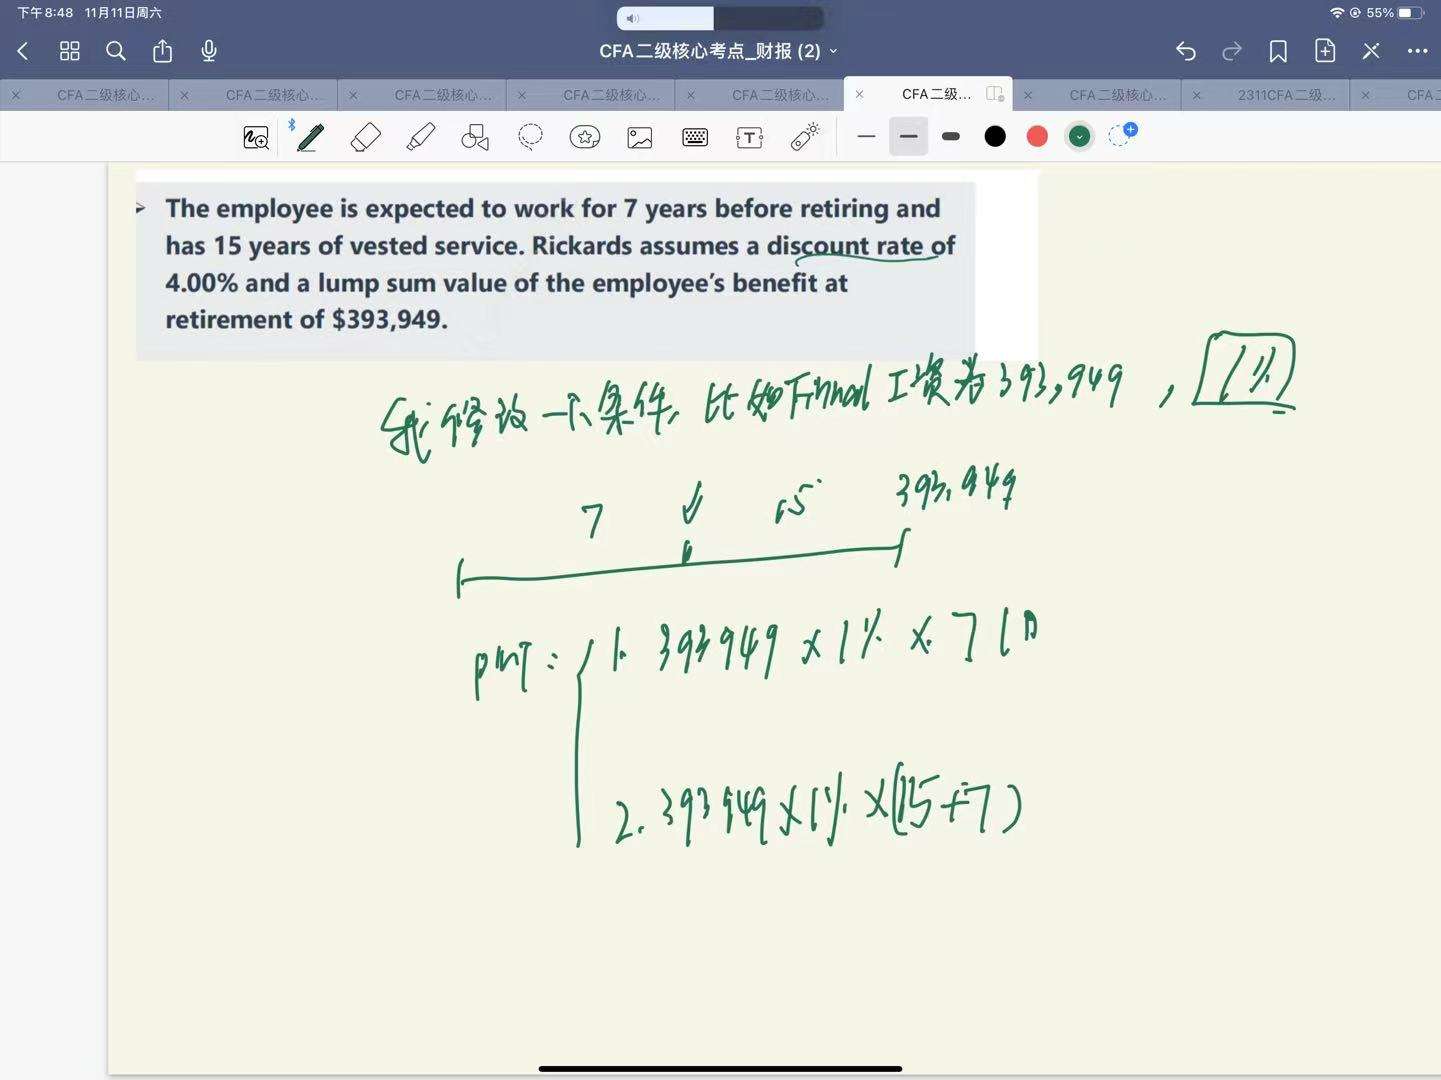 下午8:48 11月11日周六
55%
CFA二级核心考点_财报 (2)
CFA二级核心...
CFA二级核心...
CFA二级核心...
CFA二级核心...
CFA二级核心...
CFA二级...
CFA二级核心...
2311CFA二级...
CFA二
The employee is expected to work for 7 years before retiring and
has 15 years of vested service. Rickards assumes a discount rate of
4.00% and a lump sum value of the employee's benefit at
retirement of $393,949.
我修改一个条件, 比如Final工资为393,949, 1%
7 15 393,949
PMT: 1. 393949 × 1% × 7
2. 393949 × 1% × (15+7)